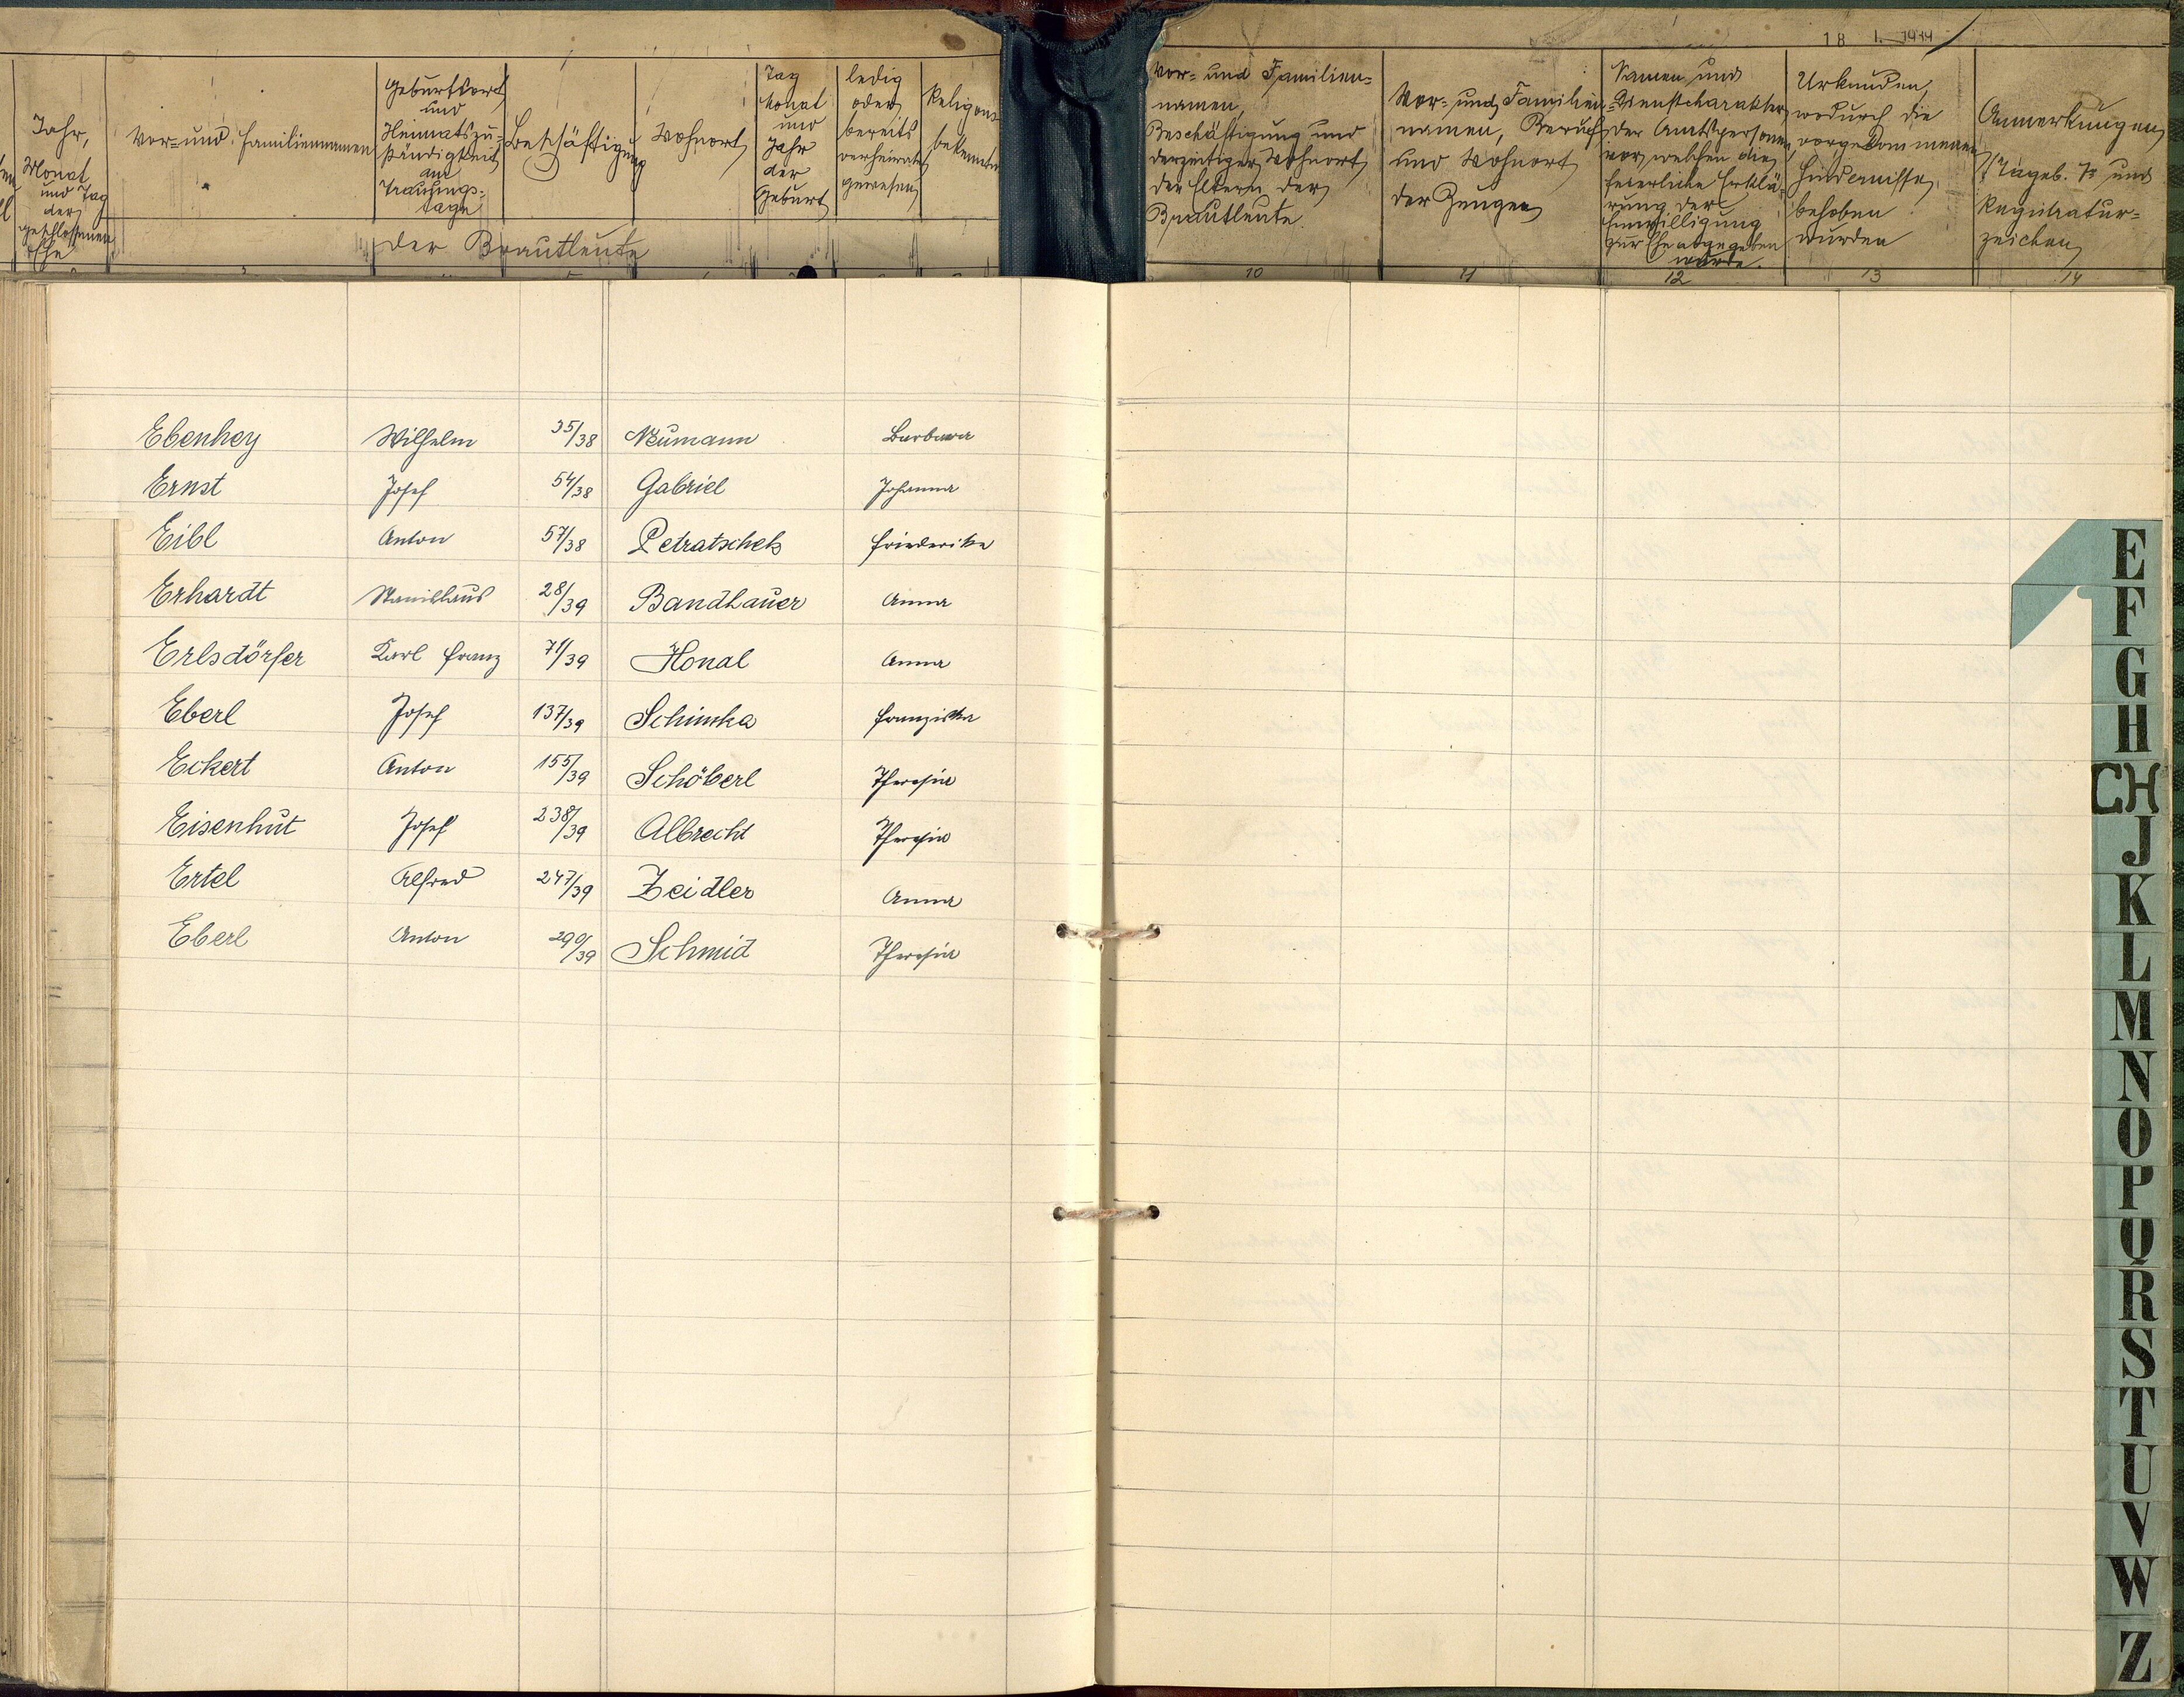 18 I. 1944
Jahr,
Monat
und Tag
der
geschlossenen
Ehe
Vor- und Familiennamen
Geburtsort
und
Heimatszu-
ständigkeit
am
Trauungs-
tage
Beschäftigung
Wohnort
Tag
Monat
und
Jahr
der
Geburt
ledig
oder
bereits
verheiratet
gewesen
Religions
bekenntn
der Brautleute
Vor- und Familien-
namen,
Beschäftigung und
derzeitiger Wohnort
der Eltern der
Brautleute
Vor- und Familien-
namen, Beruf
und Wohnort
der Zeugen
Namen und
Dienstcharakter
der Amtspersonen
vor welchen die
feierliche Erklä-
rung der
Einwilligung
zur Ehe abgegeben
wurde.
Urkunden,
wodurch die
vorgekommenen
Hindernisse
behoben
wurden
Anmerkungen
Tageb. Nr und
Registratur-
zeichen
10 11 12 13 14
Ebenhey Wilhelm 35/38 Neumann Barbara
Ernst Josef 54/38 Gabriel Johanna
Eibl Anton 57/38 Petratschek Friederike
Erhardt Stanislaus 28/39 Bandhauer Anna
Erlsdörfer Karl Franz 71/39 Honal Anna
Eberl Josef 137/39 Schimka Franziska
Eckert Anton 155/39 Schöberl Theresia
Eisenhut Josef 238/39 Albrecht Theresia
Ertel Alfred 247/39 Zeidler Anna
Eberl Anton 290/39 Schmid Theresia
E
F
G
H
CH
J
K
L
M
N
O
P
Q
R
S
T
U
V
W
Z